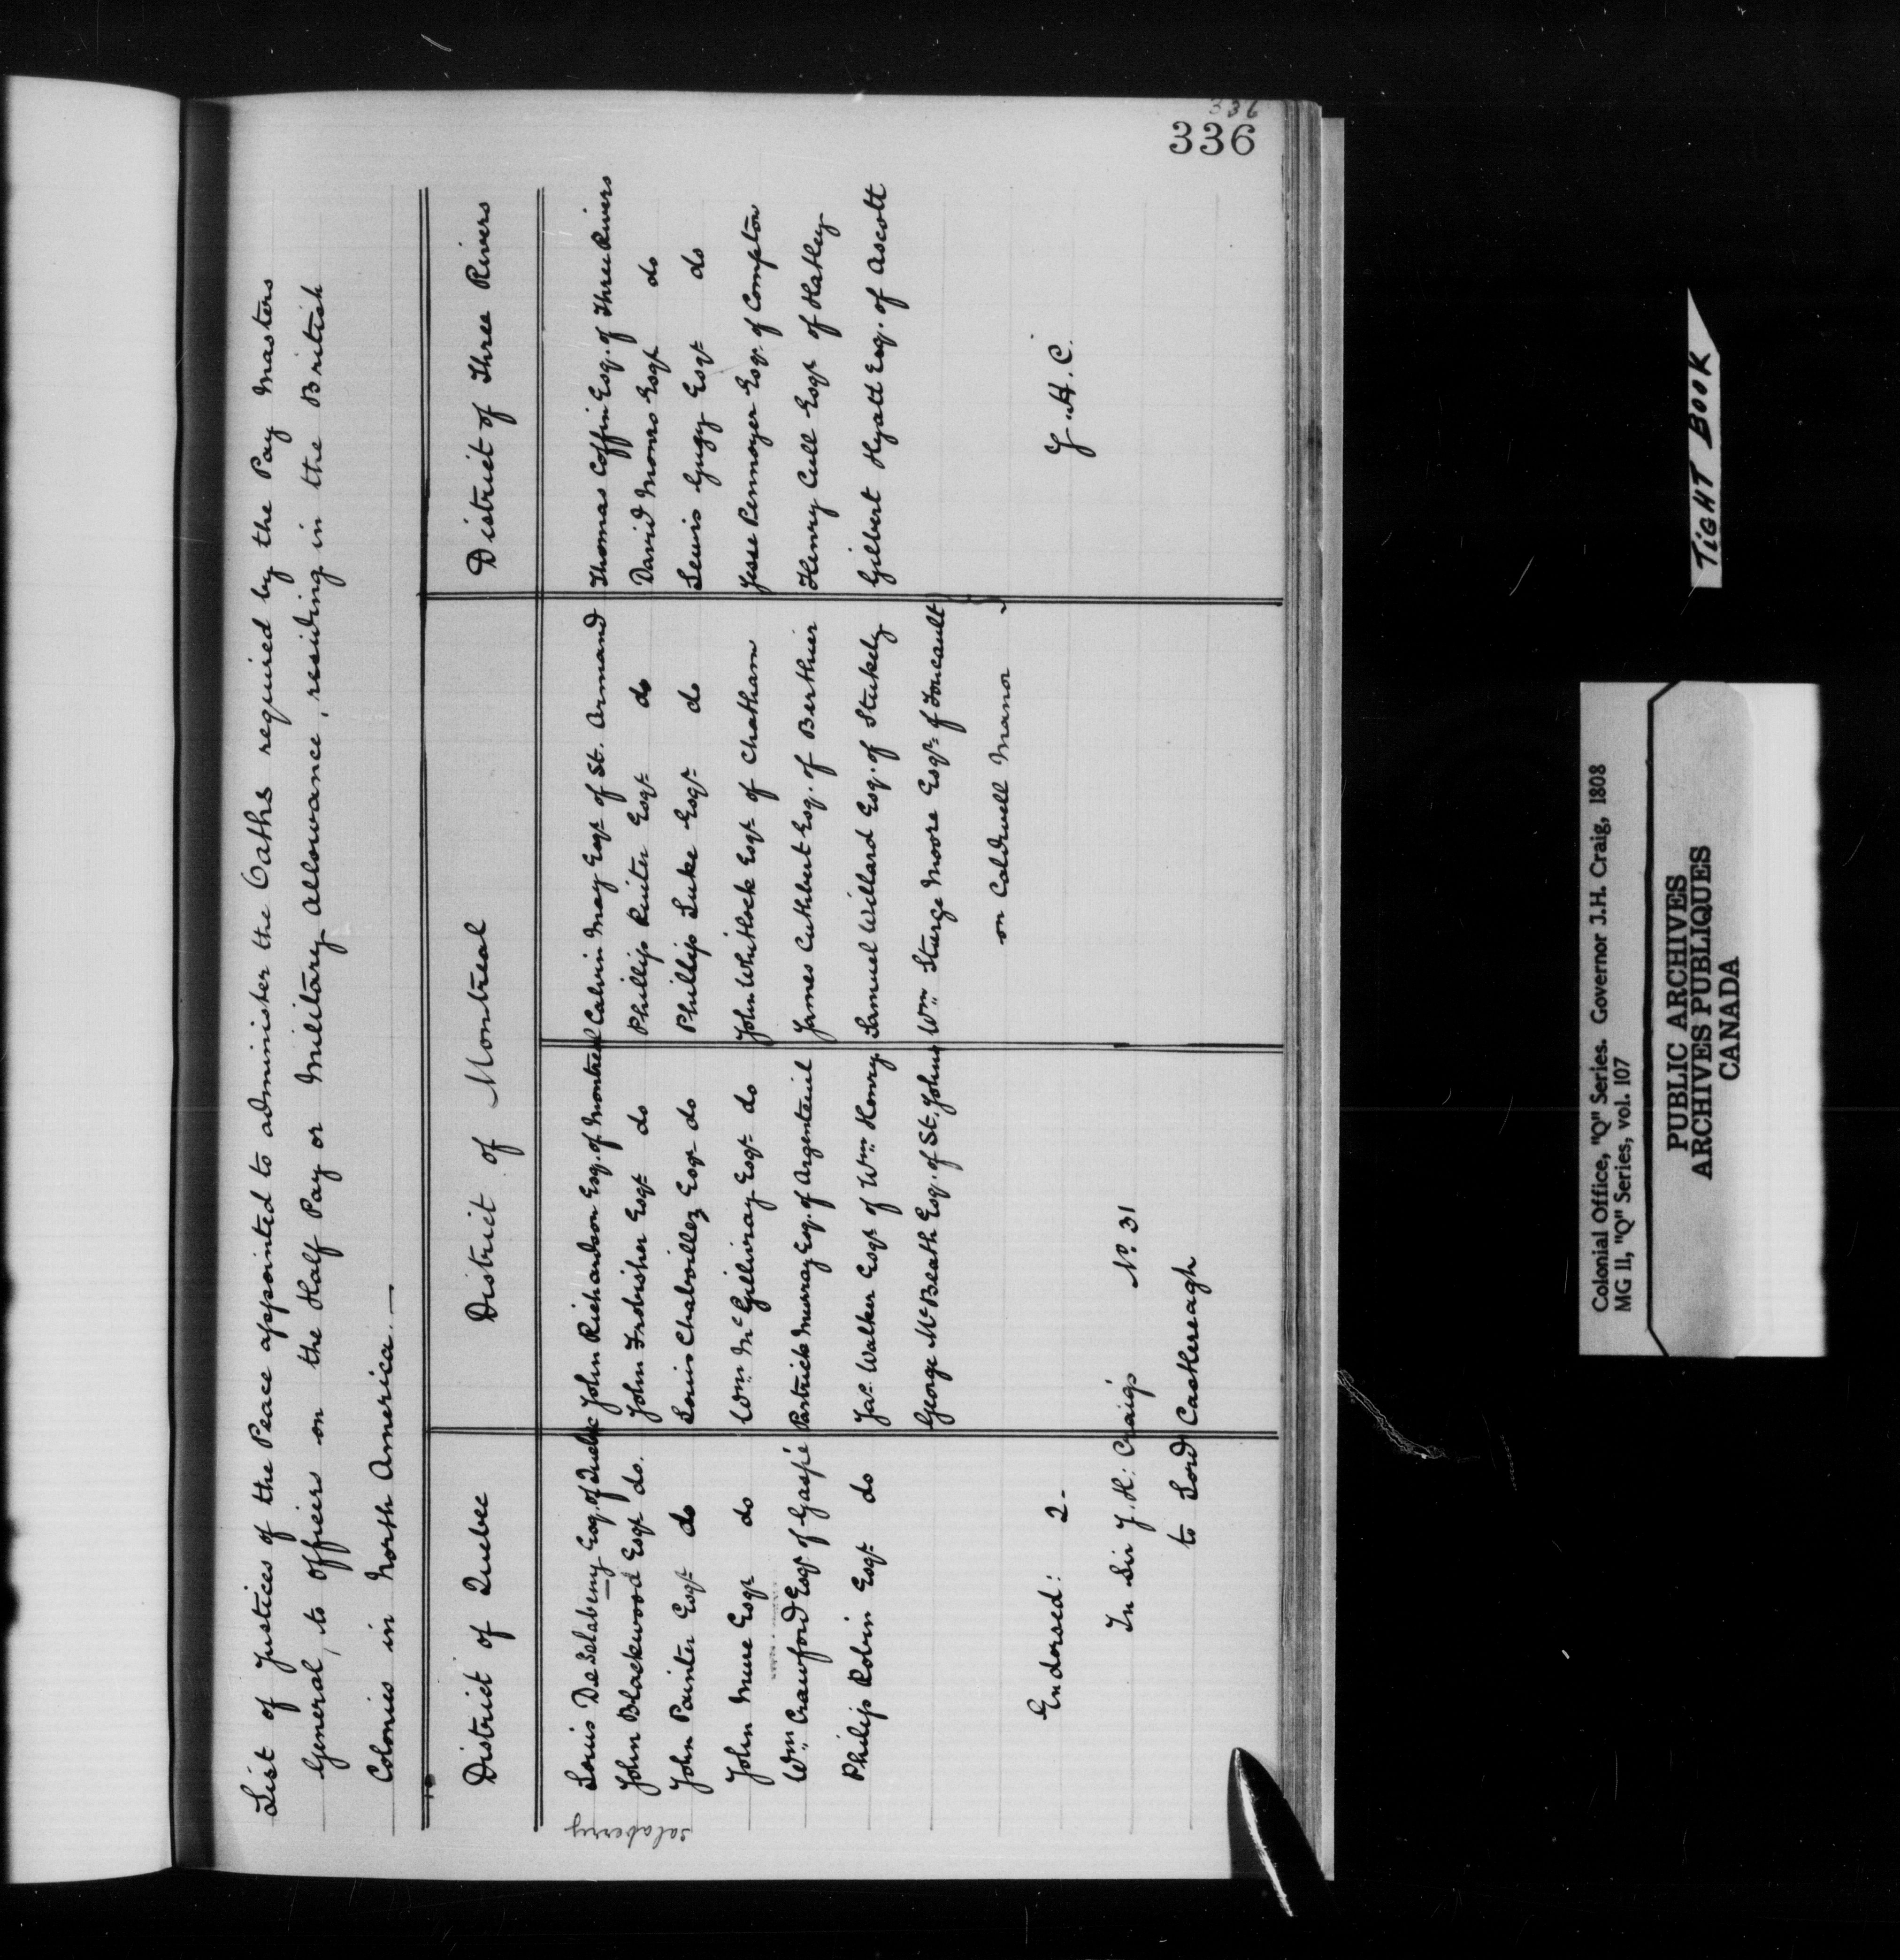 336
336
List of Justices of the Peace appointed to administer the Oaths required by the Pay Masters
General, to Officers on the Half Pay or Military Allowance, residing in the British
Colonies in North America.—
District of Quebec
Louis De Salaberry Esq. of Quebec
John Blackwood Esqr. do.
John Painter Esqr. do
John Mure Esqr. do
Wm. Crawford Esqr. of Gaspé
Philip Robin Esqr. do
salaberry
District of Montreal
John Richardson Esq. of Montreal
John Frobisher Esqr. do
Louis Chaboillez Esqr. do
Wm. McGillivray Esqr. do
Partrick Murray Esq. of Argenteuil
Jas. Walker Esqr. of Wm. Henry
George McBeath Esq. of St. Johns
Calvin May Esqr. of St. Armand
Phillip Ruiter Esqr. do
Phillip Luke Esqr. do
John Whitlock Esqr. of Chatham
James Cuthbert Esq. of Berthier
Samuel Willard Esq. of Stukely
Wm. Sturge Moore Esqr. of Foucault
or Caldwell Manor
District of Three Rivers
Thomas Coffin Esq. of Three Rivers
David Monro Esqr. do
Lewis Gugy Esqr. do
Jesse Pennoyer Esqr. of Compton
Henry Cull Esqr. of Hatley
Gilbert Hyatt Esq. of Ascott
J.H.C.
Endorsed: 2-
In Sir J.H: Craig's No. 31
to Lord Castlereagh
TIGHT BOOK
Colonial Office, "Q" Series. Governor J.H. Craig, 1808
MG 11, "Q" Series, vol. 107
PUBLIC ARCHIVES
ARCHIVES PUBLIQUES
CANADA